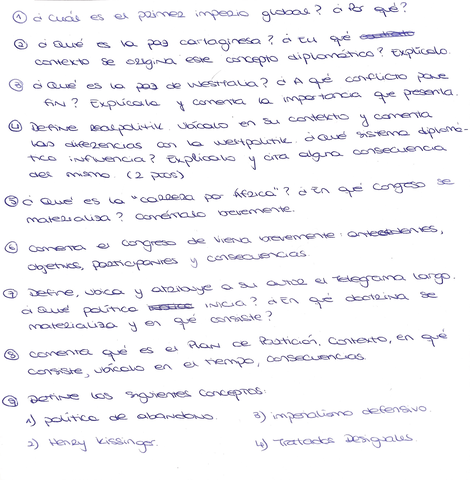 ① ¿Cuál es el primer imperio global? ¿Por qué?
② ¿Qué es la paz cartaginesa? ¿En qué
contexto se origina este concepto diplomático? Explícalo.
③ ¿Qué es la paz de Westfalia? ¿A qué conflicto pone
fin? Explícala y comenta la importancia que presenta.
④ Define Realpolitik. Ubícalo en su contexto y comenta
las diferencias con la Weltpolitik. ¿Qué sistema diplomá-
tico influencia? Explícalo y cita alguna consecuencia
del mismo. (2 ptos)
⑤ ¿Qué es la "carrera por África"? ¿En qué congreso se
materializa? Coméntalo brevemente.
⑥ Comenta el Congreso de Viena brevemente: antecedentes,
objetivos, participantes y consecuencias.
⑦ Define, ubica y atribuye a su autor el Telegrama Largo.
¿Qué política inicia? ¿En qué doctrina se
materializa y en qué consiste?
⑧ Comenta qué es el Plan de Partición. Contexto, en qué
consiste, ubícalo en el tiempo, consecuencias.
⑨ Define los siguientes conceptos:
1) política de abandono. 3) imperialismo defensivo.
2) Henry Kissinger. 4) Tratados Desiguales.